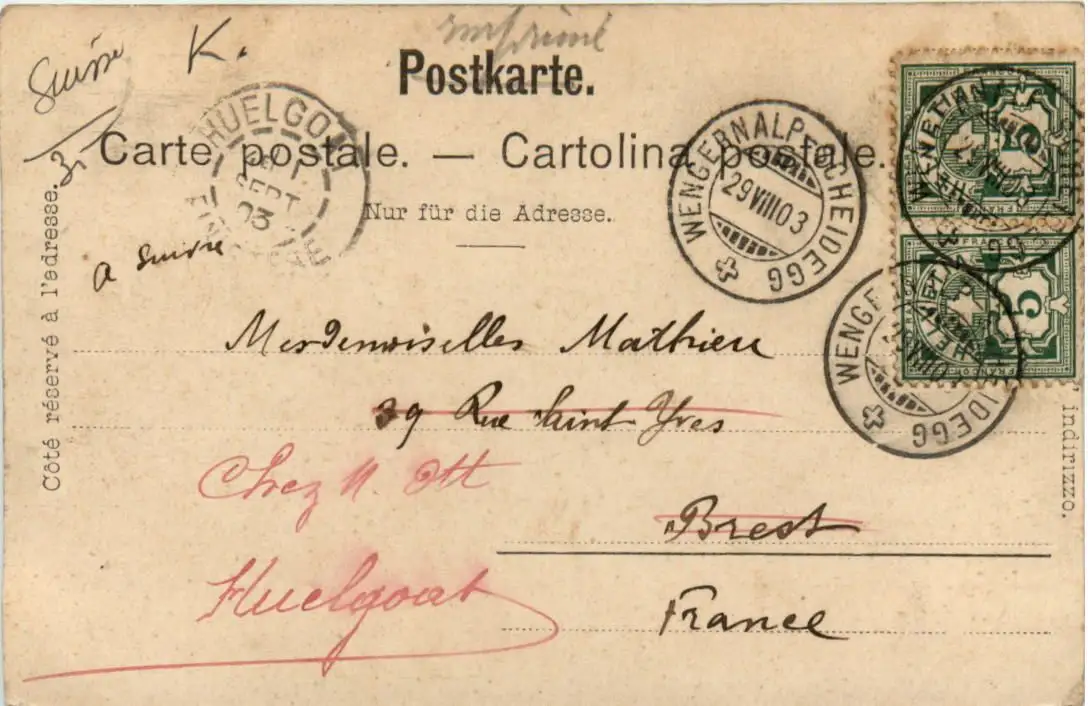 imprimé
Suisse
K.
3.
Postkarte.
Carte postale. — Cartolina postale.
Nur für die Adresse.
Côté réservé à l'adresse.
HUELGOAT
SEPT
03
FINISTERE
WENGERNALP SCHEIDEGG
29 VIII 03
WENGERNALP SCHEIDEGG
FRANCO
5
HELVETIA
FRANCO
5
HELVETIA
A suivre
Mesdemoiselles Mathieu
39 Rue Saint Yves
Chez M. Ott
Brest
Huelgoat
France
indirizzo.